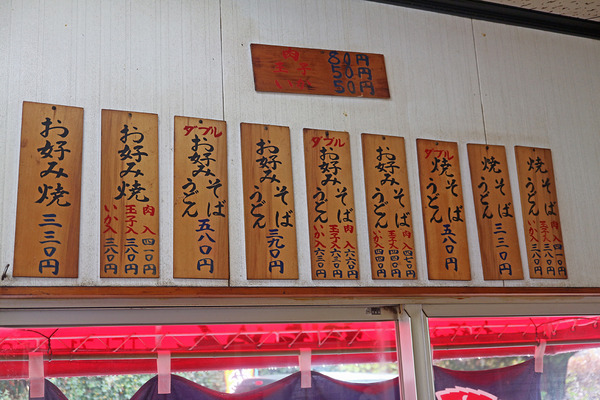 肉 80円
玉子 50円
50円
お好み焼 三三〇円
お好み焼
肉入 四一〇円
玉子入 三八〇円
いか入 三八〇円
ダブル
お好み そば
うどん 五八〇円
お好み そば
うどん 三九〇円
ダブル
お好み そば
うどん
肉入 六六〇円
玉子入 六三〇円
いか入 六三〇円
お好み そば
うどん
肉入 四七〇円
玉子入 四四〇円
いか入 四四〇円
ダブル
焼そば
うどん 五八〇円
焼そば
うどん 三三〇円
焼そば
うどん
肉入 四一〇円
玉子入 三八〇円
いか入 三八〇円